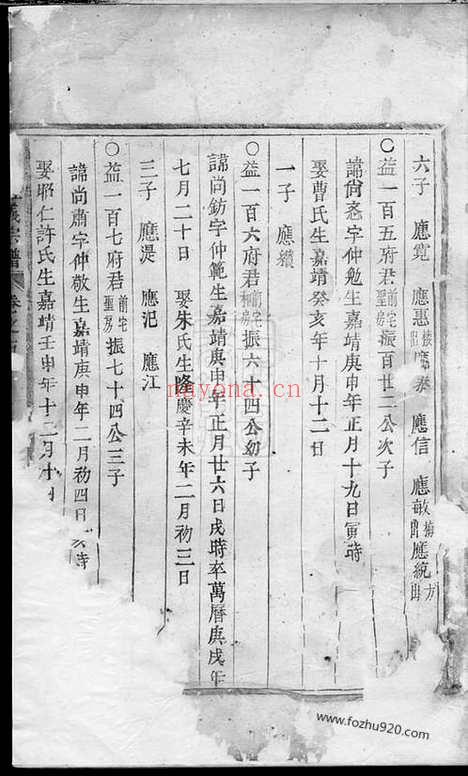 六子 應寬 應惠 應泰 應信 應敏 應統
○益一百五府君前宅聖房振百廿二公次子
諱尚忞字仲勉生嘉靖庚申年正月十九日寅時
娶曹氏生嘉靖癸亥年十月十二日
一子 應纘
○益一百六府君前宅房振六十四公幼子
諱尚鈁字仲範生嘉靖庚申年正月廿六日戌時卒萬曆庚戌年
七月二十日 娶朱氏生隆慶辛未年二月初三日
三子 應湜 應汜 應江
○益一百七府君前宅聖房振七十四公三子
諱尚肅字仲敬生嘉靖庚申年二月初四日時
娶昭仁許氏生嘉靖壬申年十二月十
宗譜 卷之
nayona.cn
www.fozhu920.com